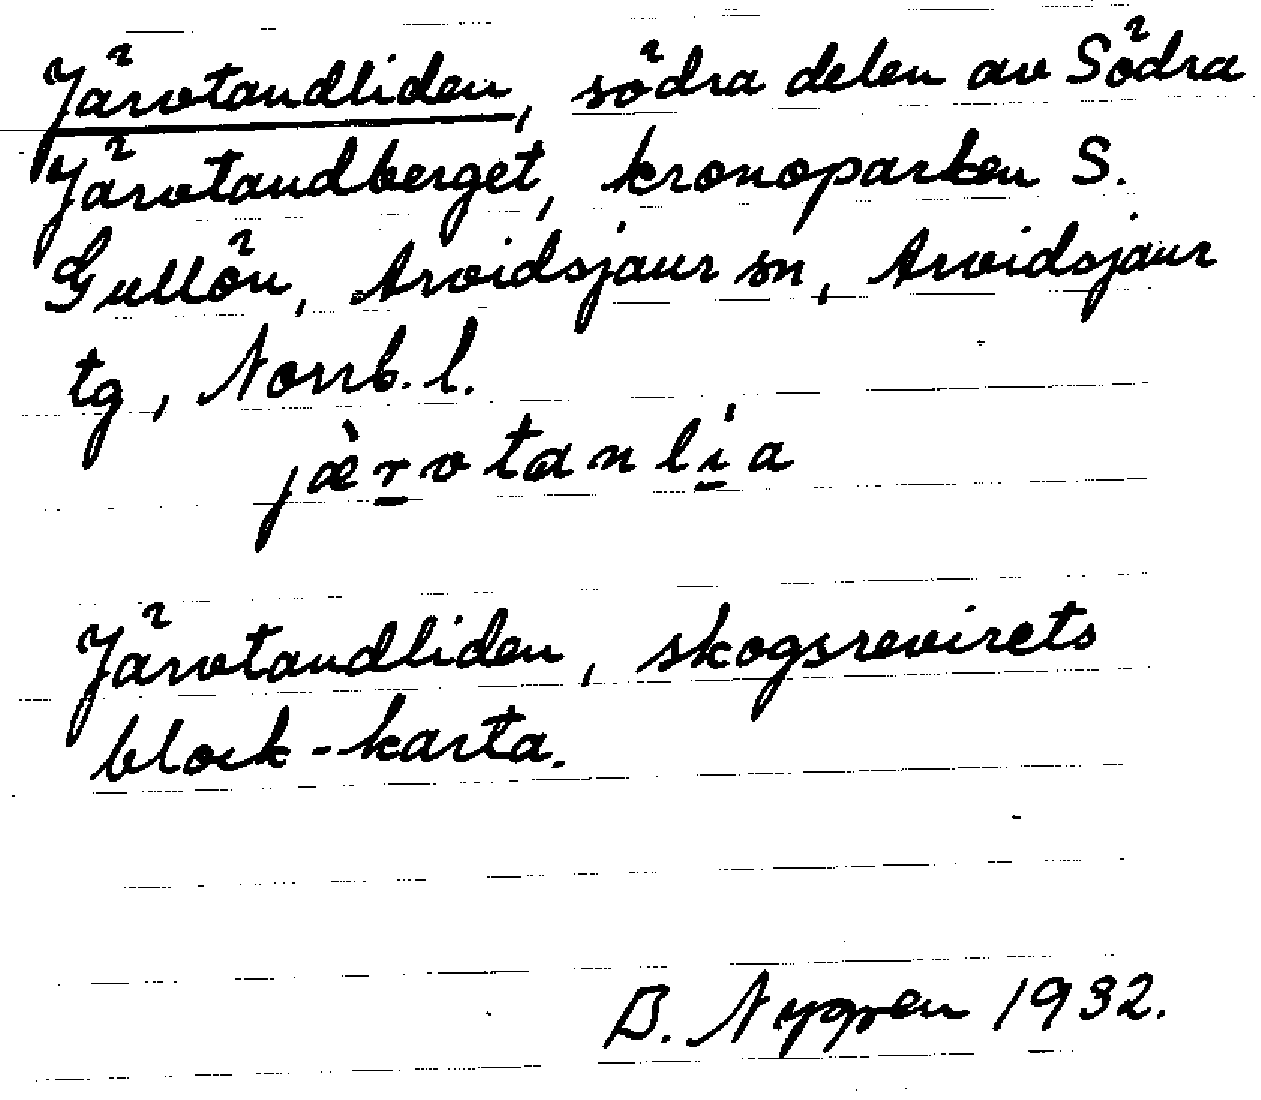 Järvtandliden, södra delen av Södra
Järvtandberget, kronoparken S.
Gullön, Arvidsjaur sn, Arvidsjaur
tg, Norrb. l.
jæ̀r̲vtanlí̲a
Järvtandliden, skogsrevirets
block-karta.
B. Nygren 1932.